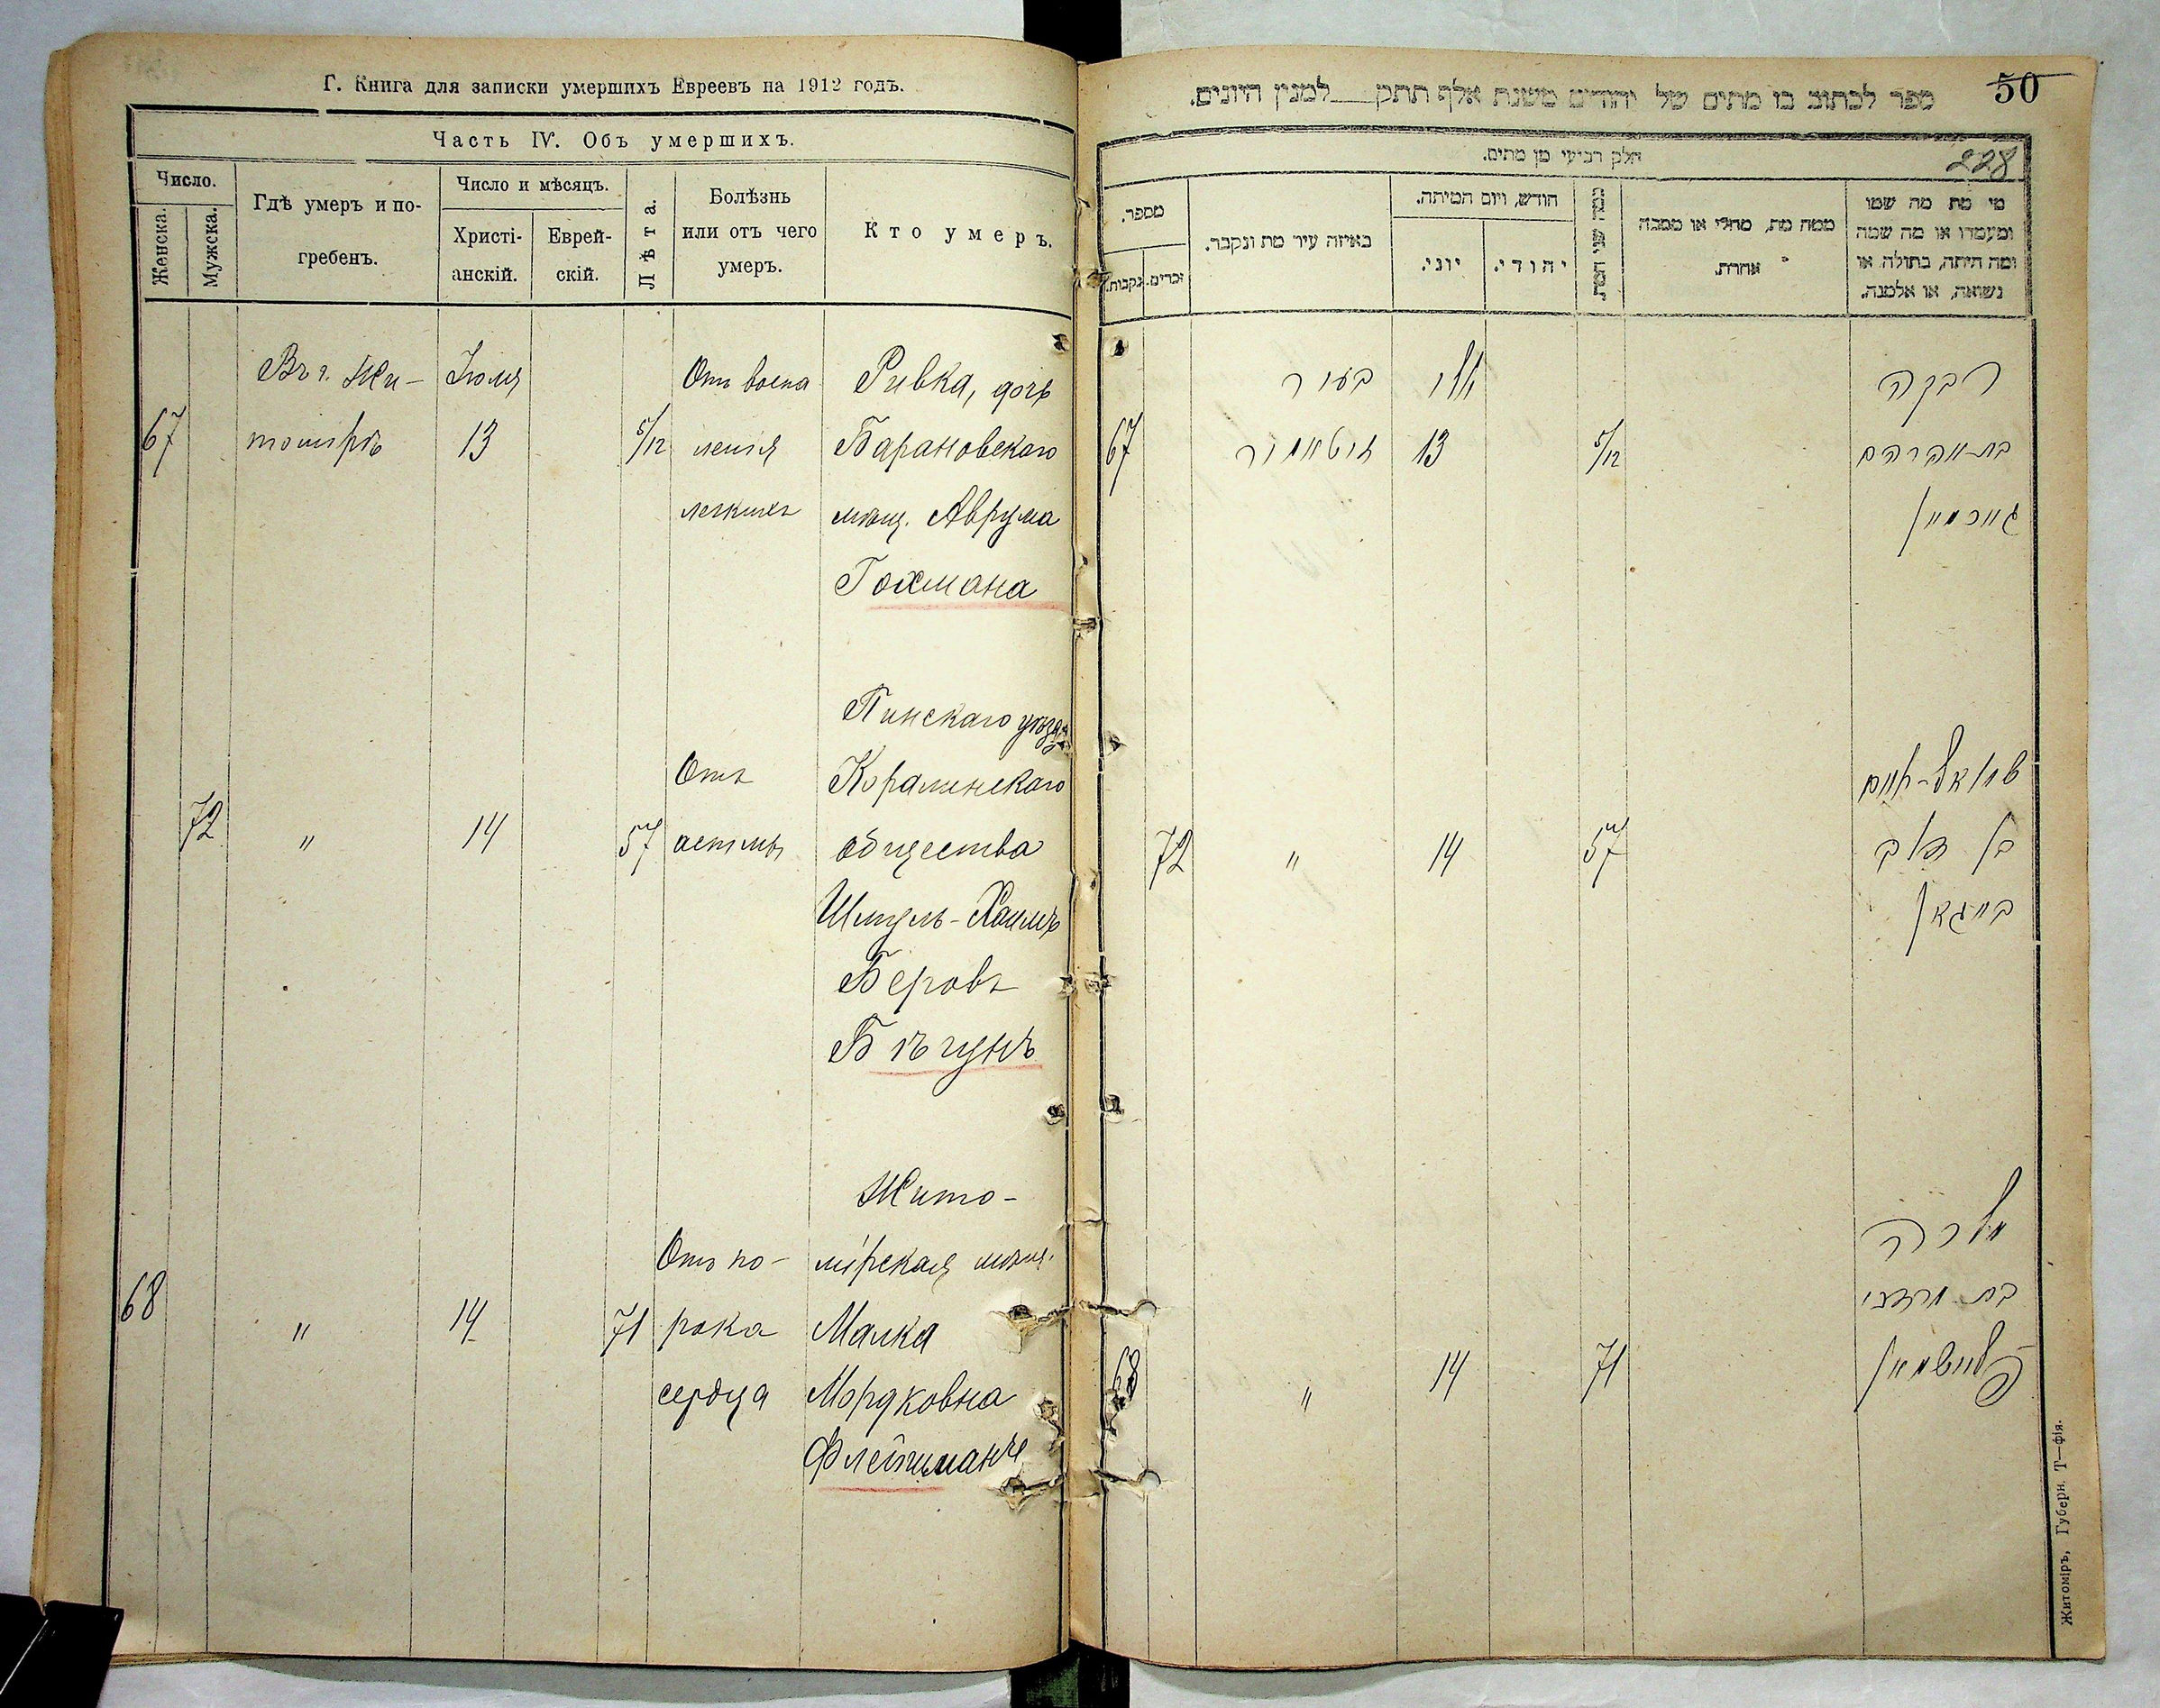 Г. Книга для записки умершихъ Евреевъ на 1912 годъ.
Часть IV. Объ умершихъ.
Число.
Женска.
Мужска.
Гдѣ умеръ и по-
гребенъ.
Число и мѣсяцъ.
Христі-
анскій.
Еврей-
скій.
Лѣта.
Болѣзнь
или отъ чего
умеръ.
Кто умеръ.
Въ г. Жи- Іюля Отъ воспа Ривка, дочь
67 томірѣ 13 5/12 ленія Барановскаго
легкихъ мѣщ. Аврума
Гохмана
Пинскаго уѣзда
Отъ
Кораличскаго
72 " 14 57 астмы общества
Шмуль-Хаимъ
Беровъ
Бѣгунъ
Жито-
Отъ по- мірская мѣщ.
68 " 14 71 рока Малка
сердца Мордковна
Флейшманъ
50
ספר לכתוב בו מתים של יהודים משנת אלף תתק___למנין היונים.
228
חלק רביעי מן מתים.
מספר.
נקבות.
זכרים.
באיזה עיר מת ונקבר.
חודש, ויום המיתה.
יוני.
יהודי.
כמה שני המת.
ממה מת, מחלי או מסבה
אחרת.
מי מת מה שמו
ומעמדו או מה שמה
ומה היתה, בתולה או
נשואה, או אלמנה.
בעיר יולי רבקה
67 זיטאמיר 13 5/12 בת אברהם
גוכמאן
שמואל-חיים
72 " 14 57 בן דוב
ביגאן
מלכה
בת מרדכי
68 " 14 71 פליישמאן
Житоміръ, Губерн. Т—фія.